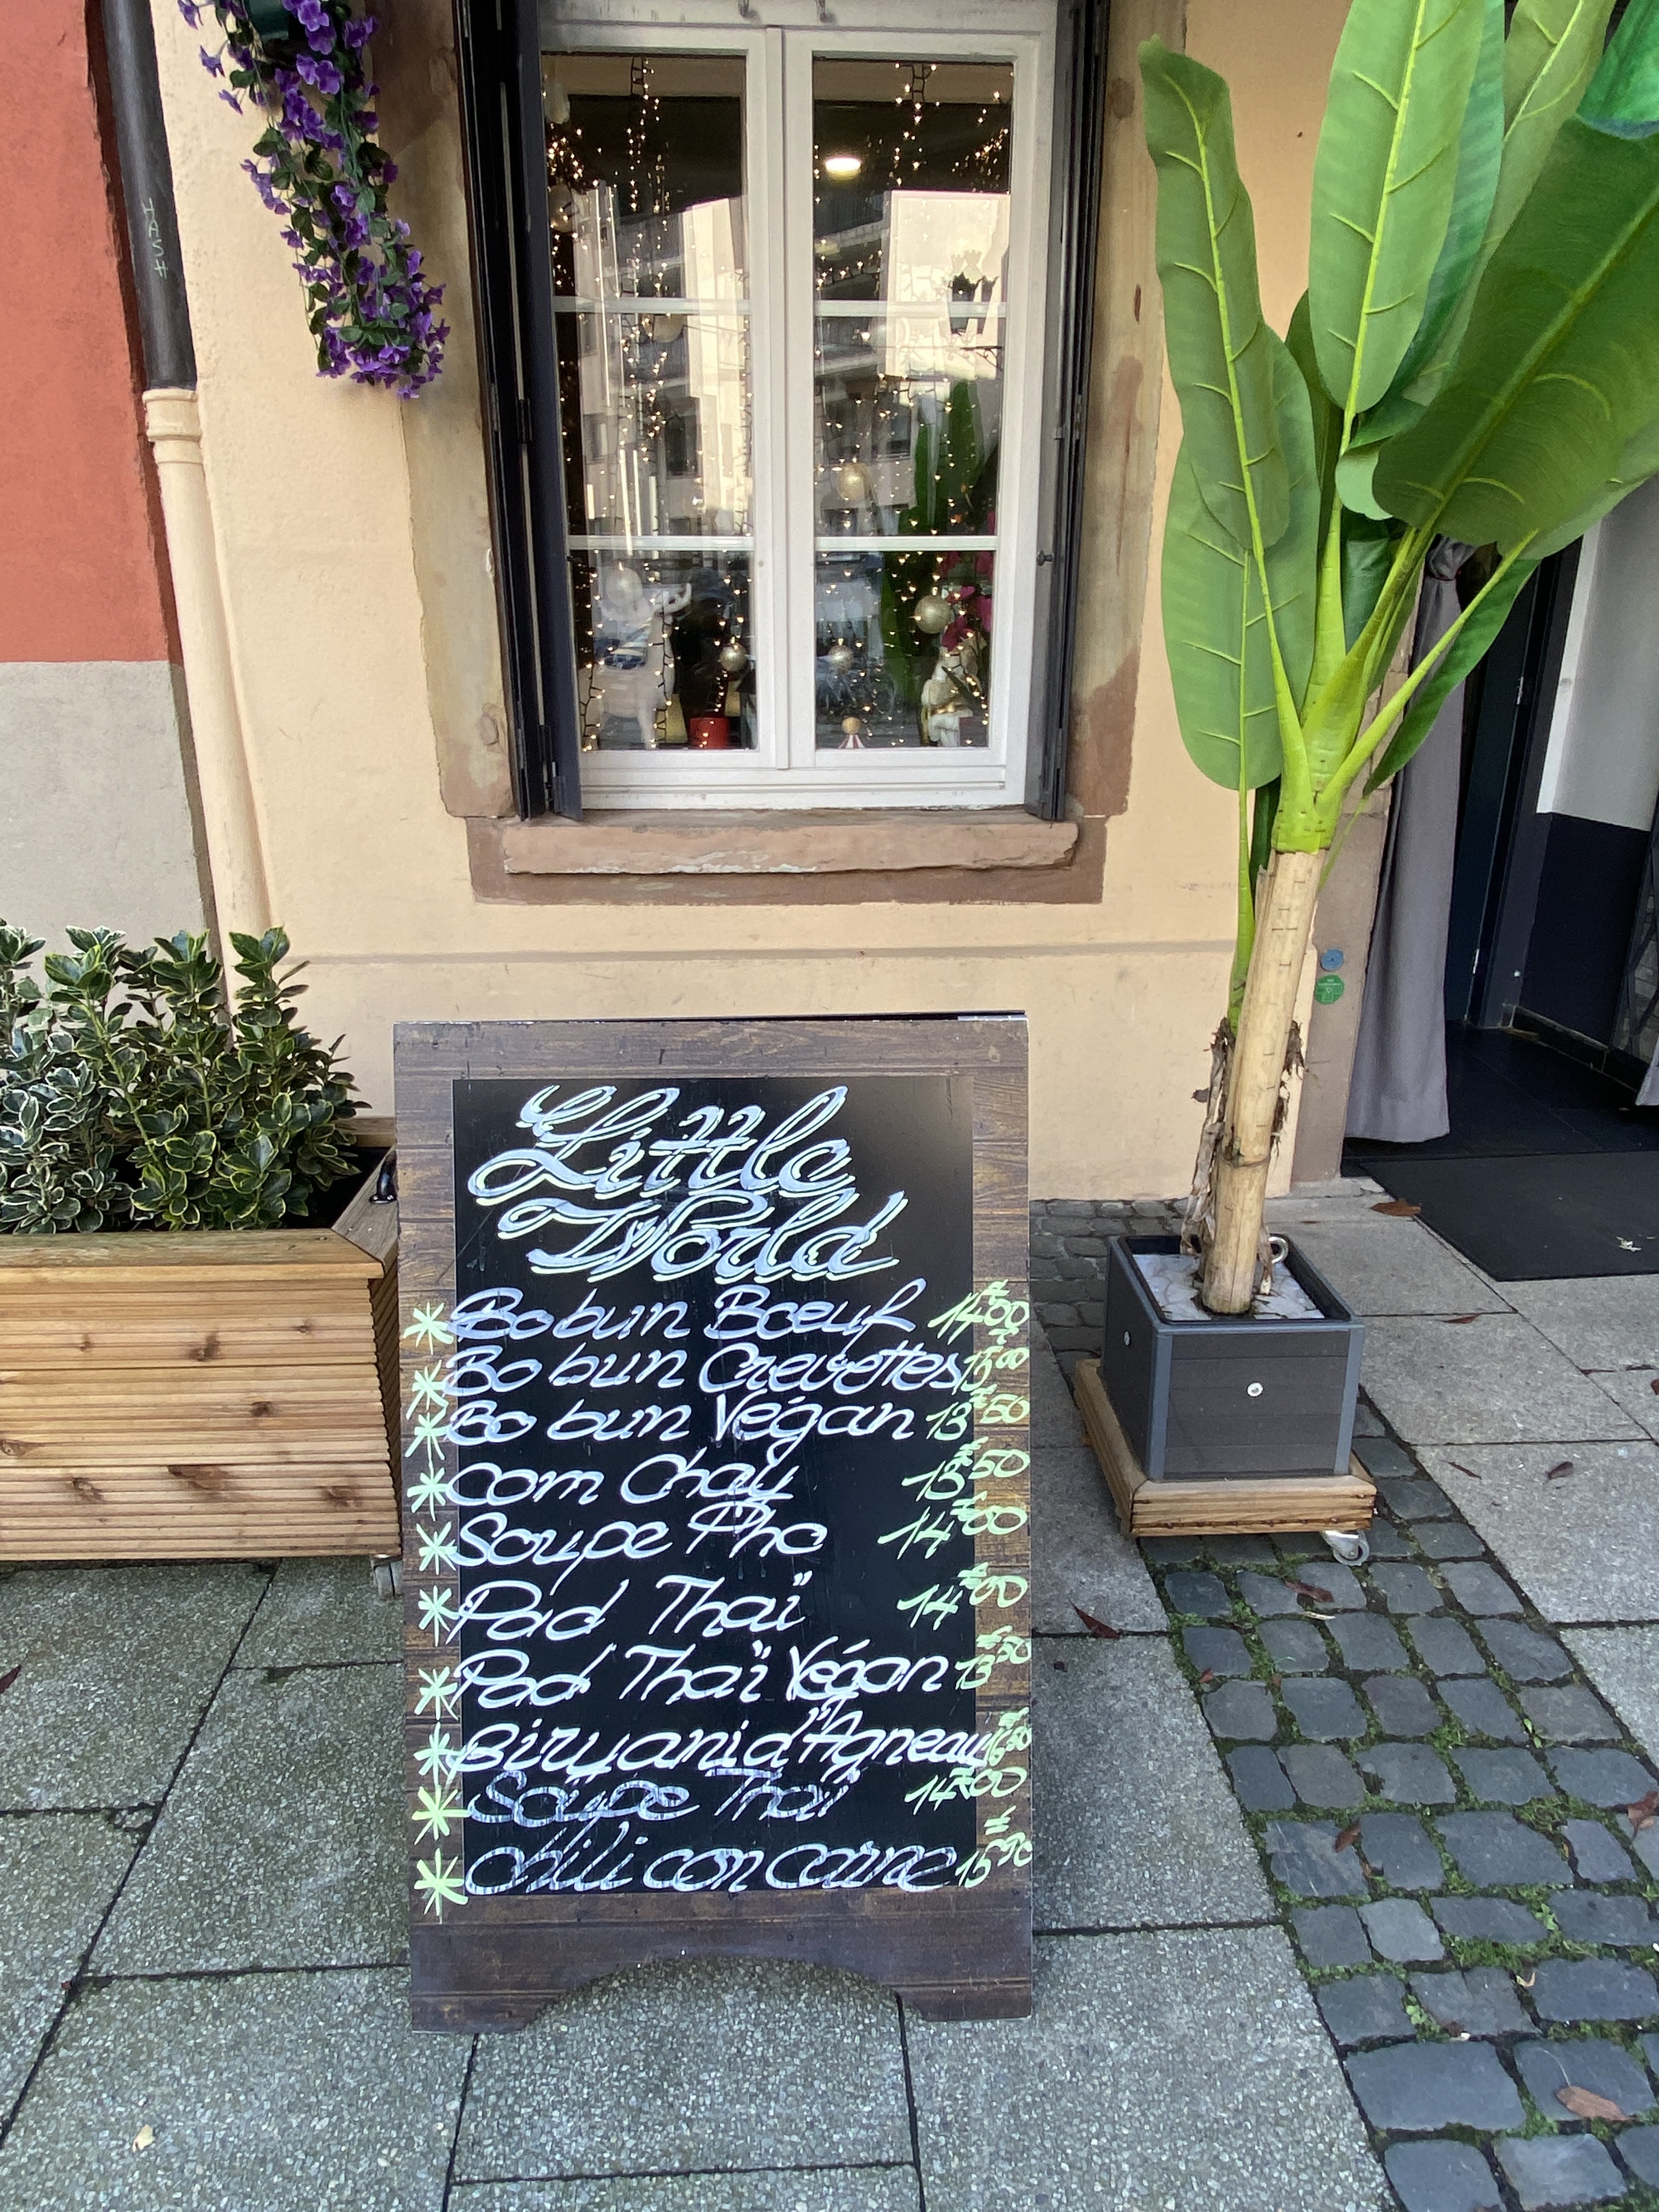 TASH
Little
World
* Bo bun Bœuf 14€00
* Bo bun Crevettes 15€00
* Bo bun Végan 13€50
* Com Chay 13€50
* Soupe Pho 14€00
* Pad Thaï 14€00
* Pad Thaï Végan 13€50
* Biryani d'Agneau 16€50
* Soupe Thaï 14€00
* Chili con carne